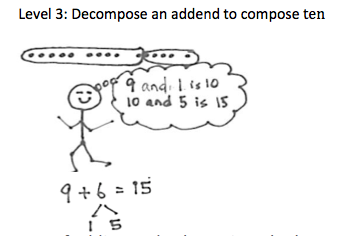 Level 3: Decompose an addend to compose ten
9 and 1 is 10
10 and 5 is 15
9 + 6 = 15
1 5